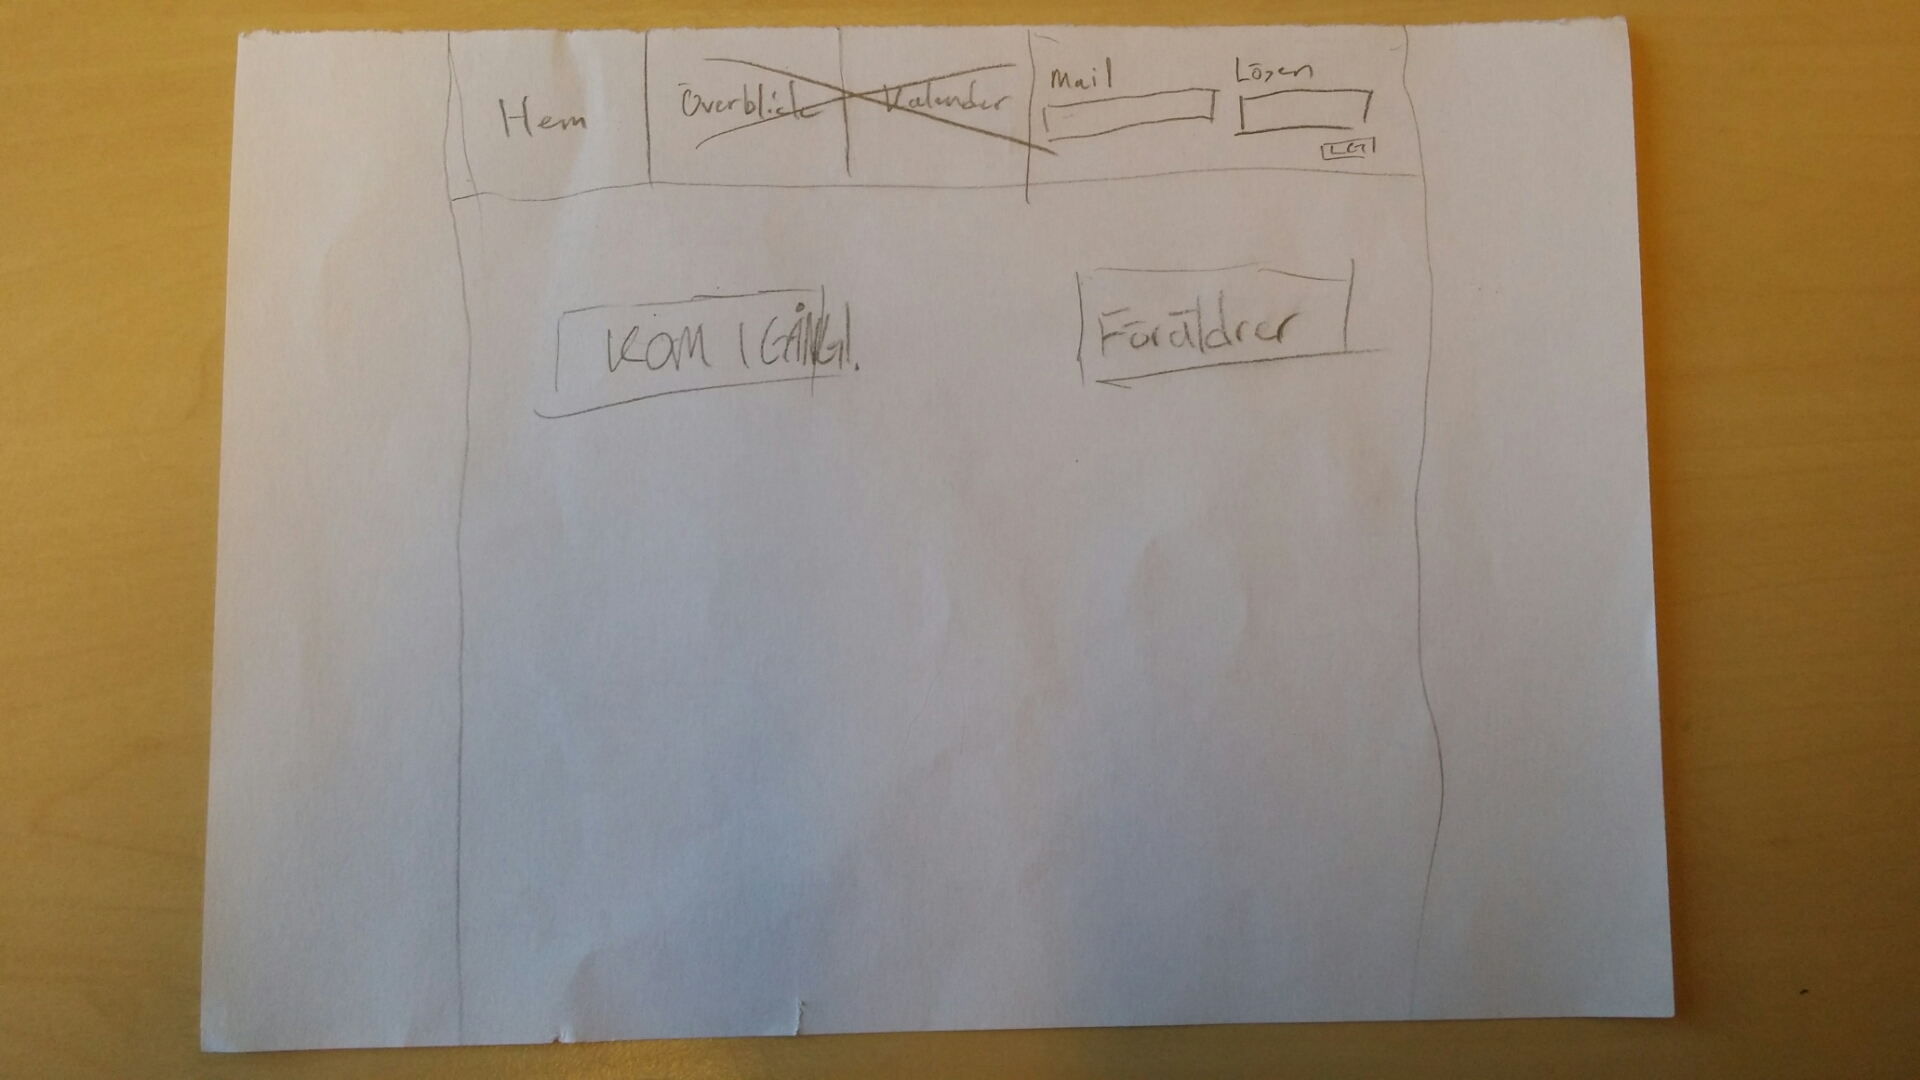 Hem
Överblick
Kalender
Mail
Lösen
KOM IGÅNG!
Föräldrer